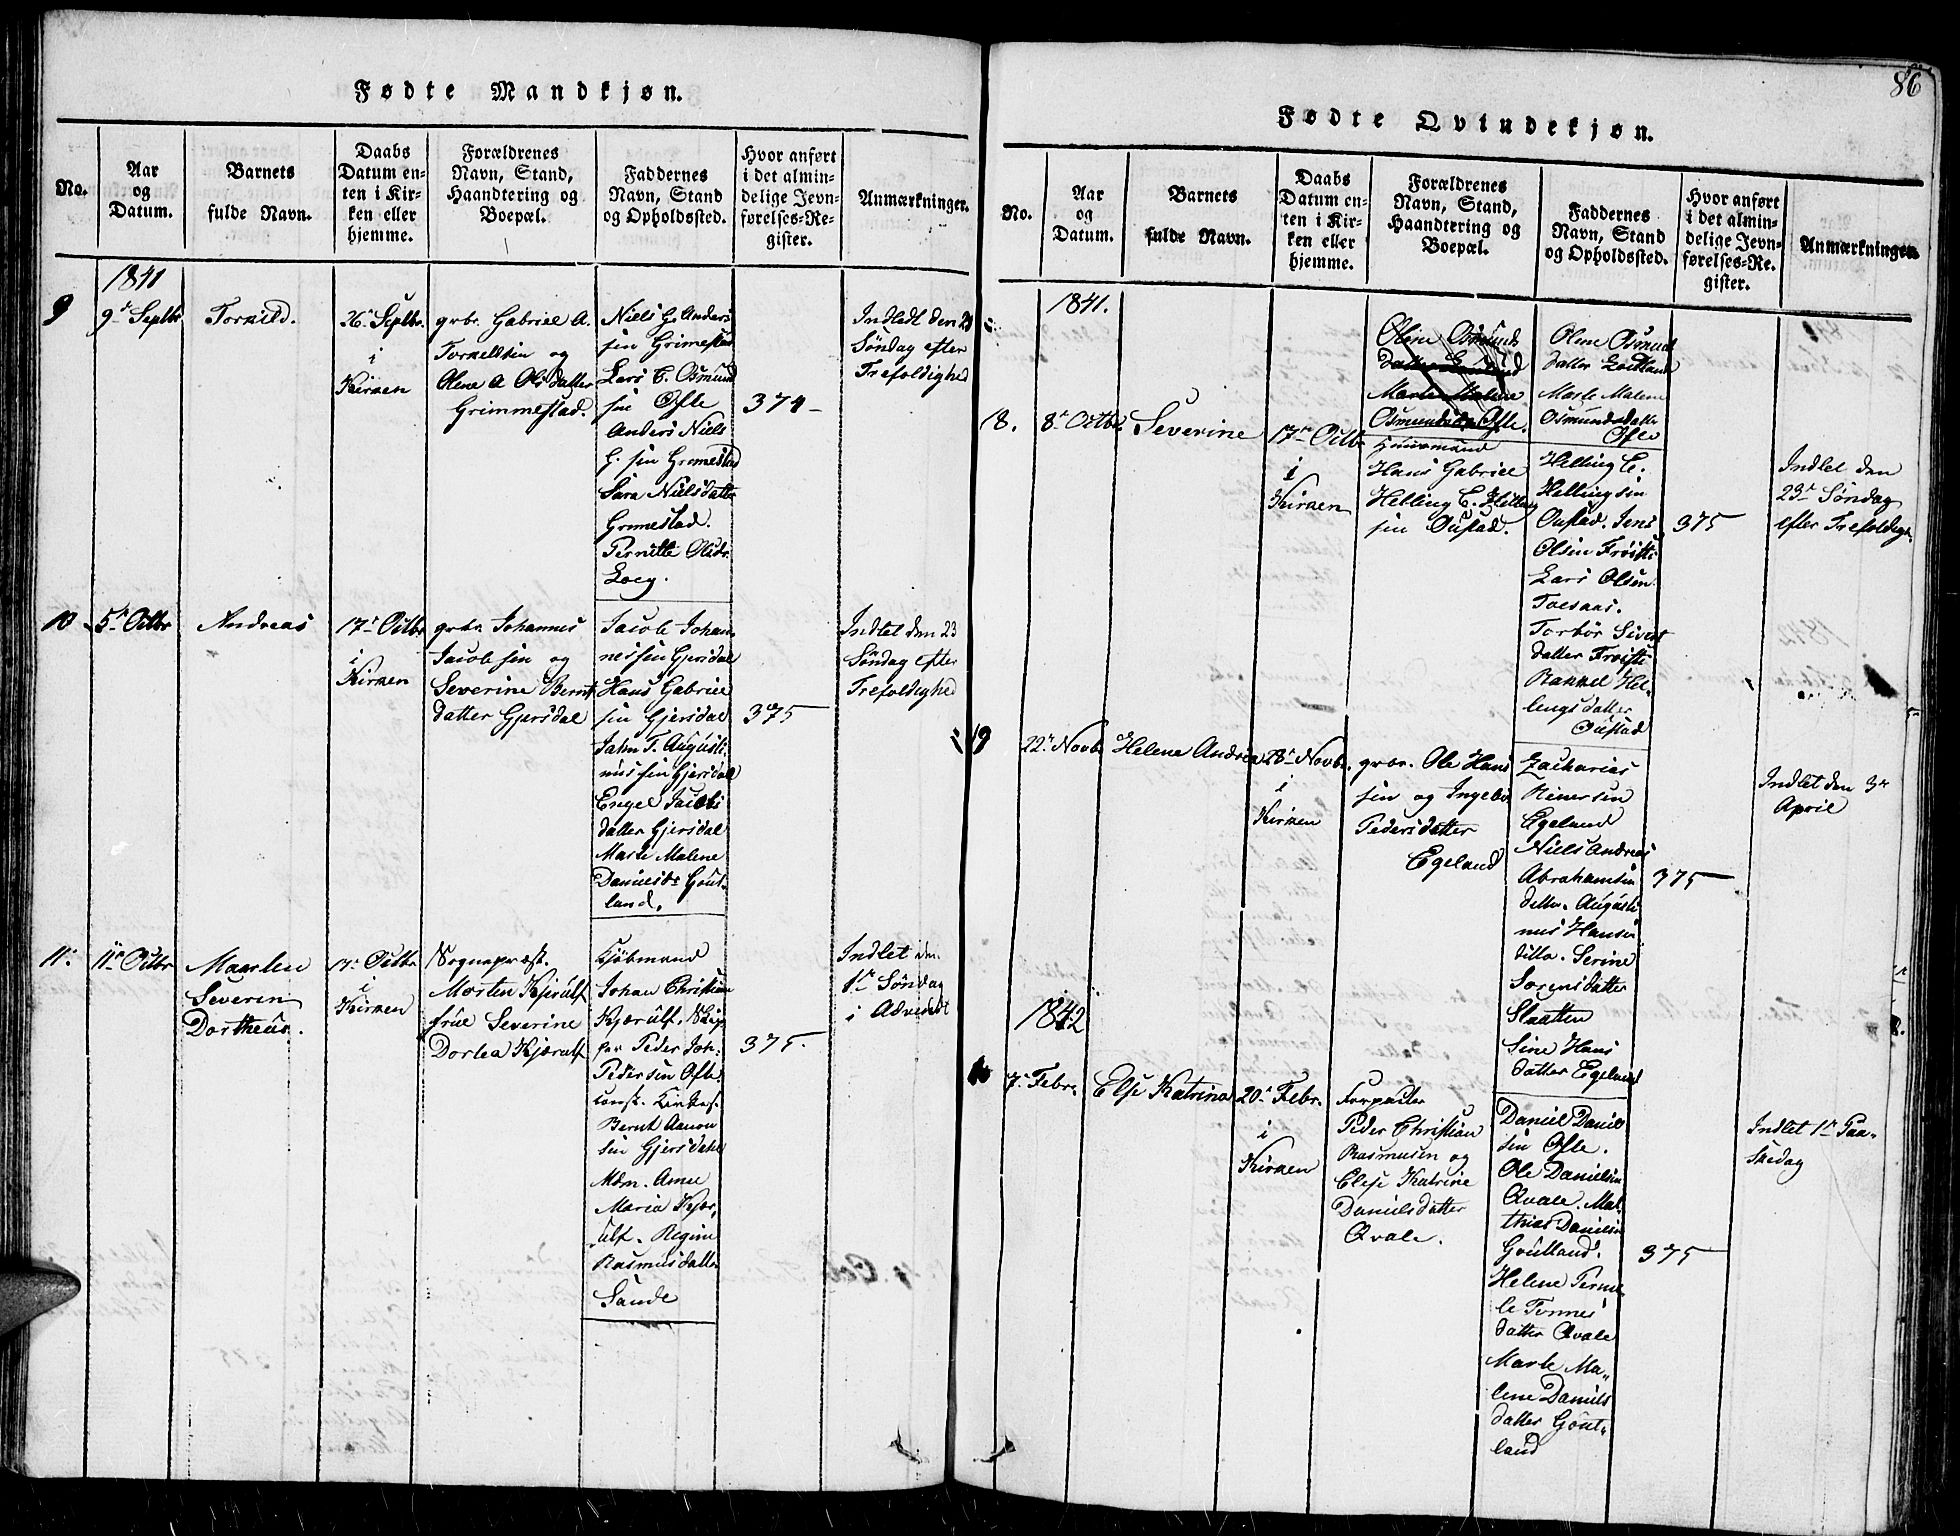 Fødte Mandkjøn.
No.
Aar
og
Datum.
Barnets
fulde Navn.
Daabs
Datum en-
ten i Kir-
ken eller
hjemme.
Forældrenes
Navn, Stand,
Haandtering og
Boepæl.
Faddernes
Navn, Stand
og Opholdssted.
Hvor anført
i det almin-
delige Jevn-
førelses-Re-
gister.
Anmærkninger.
1841
9
9de Septbr
Torkild.
26de Septbr.
i
Kirken
grbr. Gabriel A.
Torkildsen og
Olene A Olsdatter
Grimmestad.
Niels G. Anders
sen Grimestad
Lars C. Osmund
sen Ofte
Anders Niels
G. sen Grimestad
Sara Nielsdatter
Grimestad.
Pernille Olsdr.
Loeg.
374
Indledt den
Søndag efter
Trefoldighed
10
5te Octbr
Andreas
17de Octbr
i
Kirken
grbr. Johannes
Jacobsen og
Severine Bernt
datter Gjersdal
Jacob Johan
nessen Gjersdal
Hans Gabriel
sen Gjersdal
Jahn T. Augusti
nussen Gjersdal
Engel Jacobs
datter Gjersdal
Marte Malene
Danielsdr Gout-
land.
375
Indlet den 23
Søndag efter
Trefoldighed
11.
11te Octbr
Maarten
Severin
Dortheus.
17de Octbr
i
Kirken
Sognepræst.
Morten Kjerulf
frue Severine
Dortea Kjærulf
Kjøbmand
Johan Christian
Kjærulf. Skip
per Peder Joh.
Pedersen Ofte
const. Kirkes.
Bernt Aanon
sen Gjersdahl
Mdm. Anne
Maria Kjær-
ulf. Regine
Rasmusdatter
Sande
375.
Indlet den
1ste Søndag
i Advendt
86
Fødte Qvindekjøn.
No.
Aar
og
Datum.
Barnets
fulde Navn.
Daabs
Datum en-
ten i Kir-
ken eller
hjemme.
Forældrenes
Navn, Stand,
Haandtering og
Boepæl.
Faddernes
Navn, Stand
og Opholdssted.
Hvor anført
i det almin-
delige Jevn-
førelses-Re-
gister.
Anmærkninger.
1841.
Olene Osmunds
datter
Marte Malene
Osmundsdr Ofte.
Olene Osmund
datter Goutland
Marte Malene
Osmundsdatter
Ofte
18.
8de Octbr
Severine
17de Octbr
i
Kirken
Huusmand
Hans Gabriel
Helling C. Helling
sen Oustad.
Helling C.
Hellingsen
Oustad. Jens
Olsen Frøisti
Lars Olsen
Toesaas.
Torbør Sivert
datter Frøisti
Rakkel Hel-
lengsdatter
Oustad
375
Indlet den
23de Søndag
efter Trefoldigh.
19
22de Novbr
Helene Andrea
28de Novbr.
i
Kirken
grbr. Ole Hans
sen og Ingebr
Pedersdatter
Egeland
Zacharias
Reinersen
Egeland
Niels Andreas
Abrahamsen
ditto. Augusti
nus Hansen
ditto. Serine
Sorensdatter
Slaatten
Sine Hans
datter Egeland
375
Indlet den 3de
April
1842
7de Febr.
Else Katrina
20de Febr.
i
Kirken
Forpagter
Peder Christian
Rasmusen og
Else Katrine
Danielsdatter
Qvale.
Daniel Daniel
sen Ofte.
Ole Danielsen
Qvale. Mat
thias Danielsen
Goutland.
Helene Perne-
le Tønnes
datter Qvale
Marte Ma-
lene Daniels
datter Gout-
land
375
Indlet 1ste Paa-
skedag